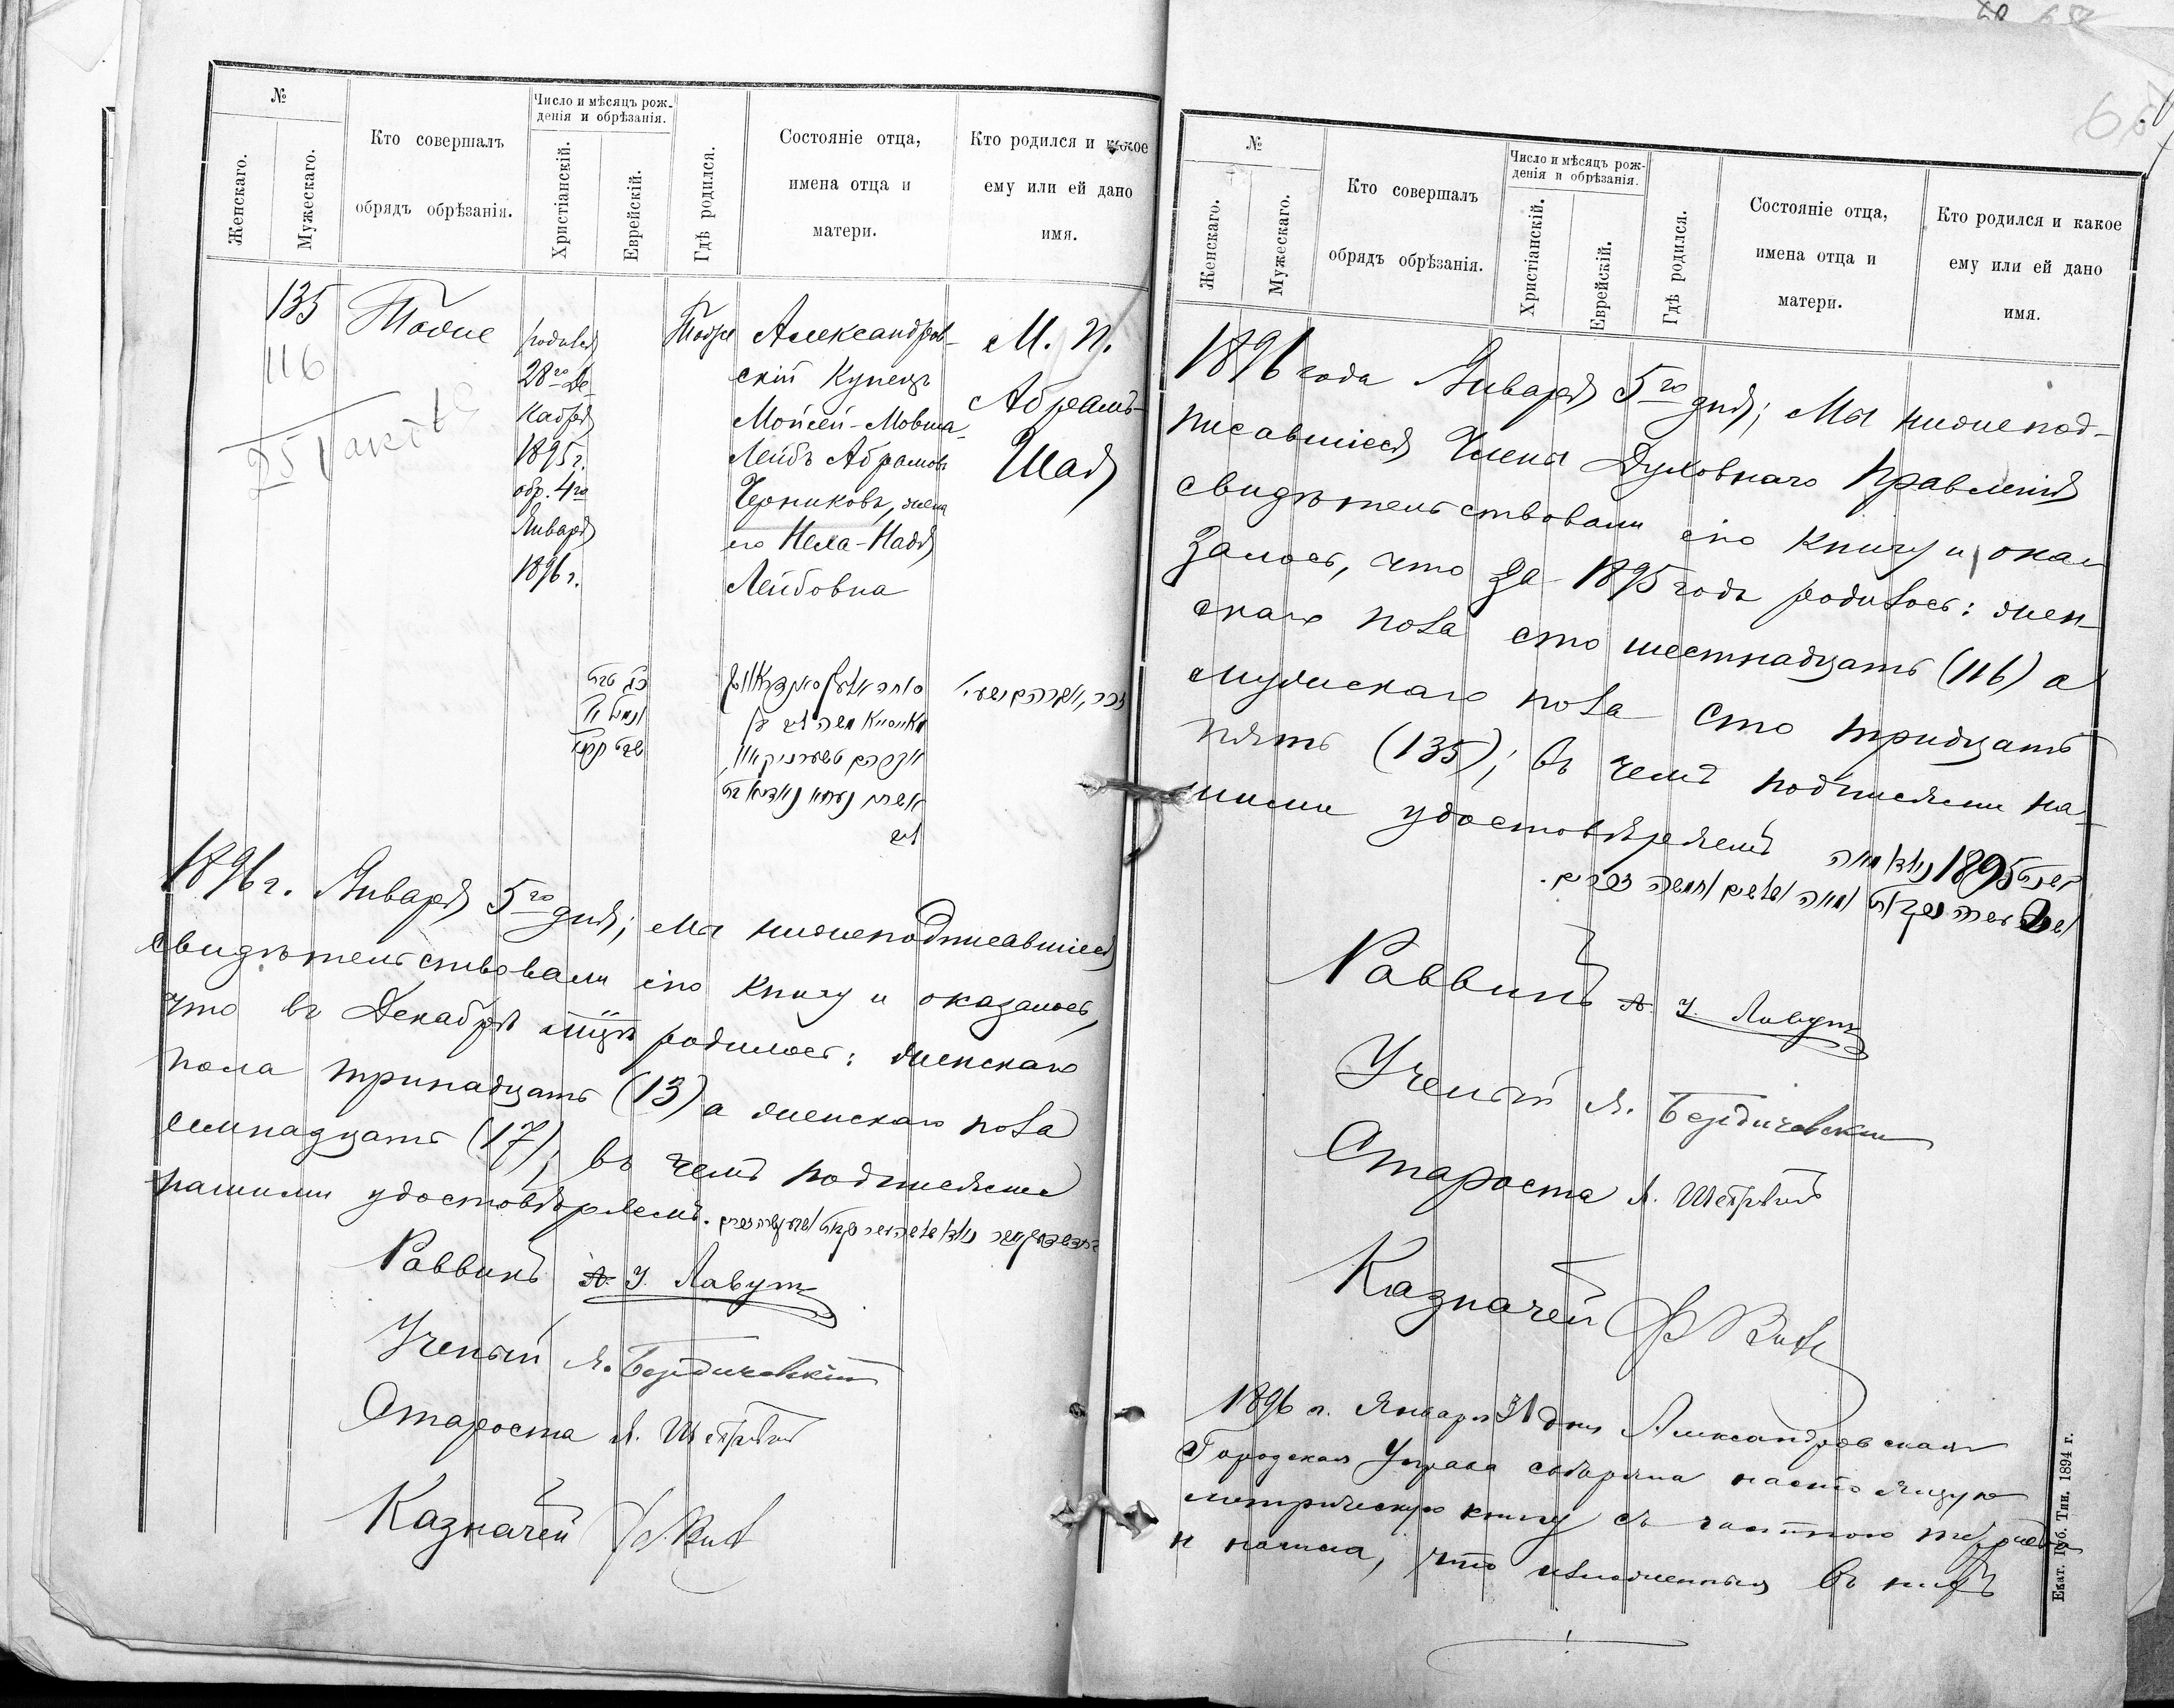 №
Женскаго.
Мужескаго.
Кто совершалъ
обрядъ обрѣзанія.
Число и мѣсяцъ рож-
денія и обрѣзанія.
Христіанскій.
Еврейскій.
Гдѣ родился.
Состояніе отца,
имена отца и
матери.
Кто родился и какое
ему или ей дано
имя.
135
116
Тоже
родился
28го Де
кабря
1895 г.
обр. 4го
Января
1896 г.
Тоже
Александров-
скій Купецъ
Мойсей-Мовша-
Лейбъ Абрамовъ
Черниковъ, жена
его Неха-Надя
Лейбовна
М. п.
Абрамъ-
Шая
1896 г. Января 5го дня; мы нижеподписавшіеся
свидѣтельствовали сію книгу и оказалось,
что въ Декабрѣ мцѣ родилось: женскаго
пола тринадцать (13) а женскаго пола
семнадцать (17); въ чемъ подписями
нашими удостовѣряемъ.
Раввинъ А. У. Лавут
Ученый Я. Бердичевскій
Староста
Казначей
65
№
Женскаго.
Мужескаго.
Кто совершалъ
обрядъ обрѣзанія.
Число и мѣсяцъ рож-
денія и обрѣзанія.
Христіанскій.
Еврейскій.
Гдѣ родился.
Состояніе отца,
имена отца и
матери.
Кто родился и какое
ему или ей дано
имя.
1896 года Января 5го дня; Мы нижепод-
писавшіеся Члены Духовнаго Правленія
свидѣтельствовали сію книгу и ока-
залось, что за 1895 годъ родилось: жен-
скаго пола сто шестнадцать (116) а
мужескаго пола сто тридцать
пять (135); въ чемъ подписями на-
шими удостовѣряемъ 1895
Раввинъ А. У. Лавут
Ученый Я. Бердичевскій
Староста
Казначей
1896 г. Января 31 дня Александровская
Городская Управа свѣряла настоящую
метрическую книгу съ частною тетрадью
и нашла, что изложенныя въ нихъ
Екат. Губ. Тип. 1894 г.